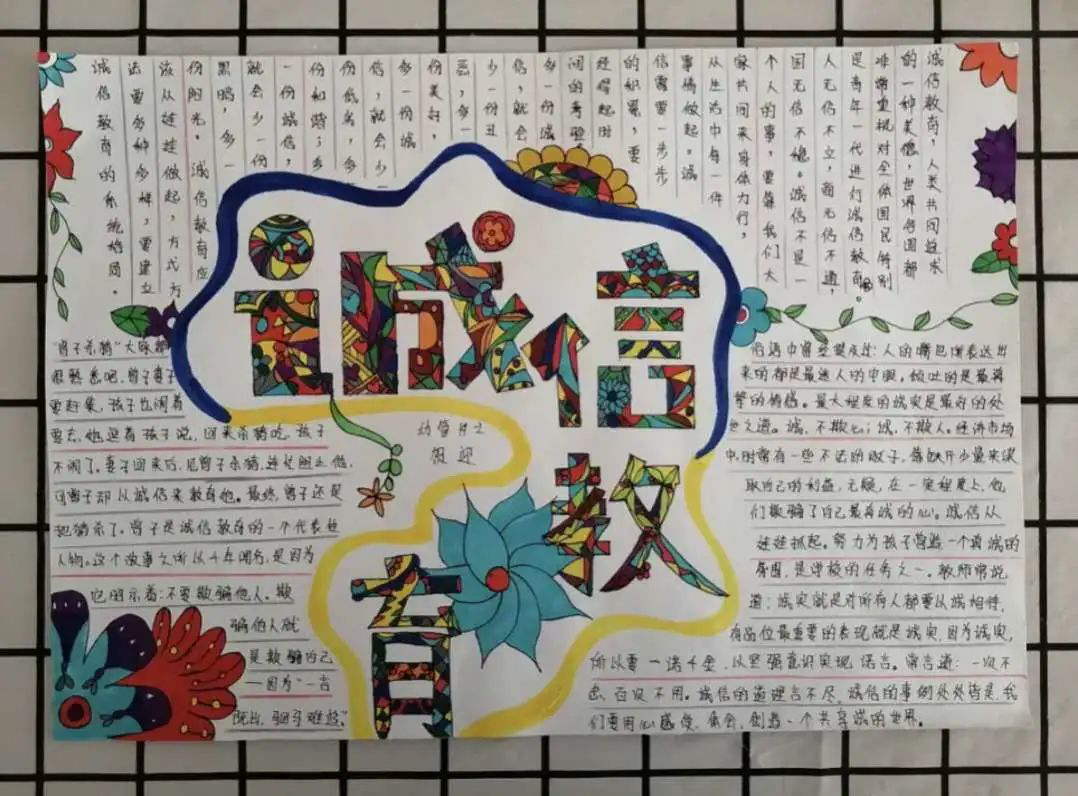 诚信教育
诚信教育，人类共同追求
的一种美德，世界各国都
非常重视对全体国民特别
是青年一代进行诚信教育。
人无信不立，商无信不通，
国无信不稳。诚信不是一
个人的事，要靠我们大
家共同来身体力行，
从生活中每一件
事情做起。诚
信需要一步步
的积累，要
经得起时
间的考验。
多一份诚
信，就会
少一份丑
恶，多一
份美好，
多一份诚
信，就会少一
份危害，多
份和谐；多
一份诚信，
就会少一份
黑暗，多一
份阳光。诚信教育应
该从娃娃做起，方式方
法要多种多样，要建立
诚信教育的系统格局。
“曾子杀猪”大家都
很熟悉吧，曾子妻子
要赶集，孩子也闹着
要去，她逗着孩子说，回来杀猪吃，孩子
不闹了。妻子回来后，见曾子杀猪，连忙阻止他，
可曾子却从诚信来教育他。最终，曾子还是
把猪杀了。曾子是诚信教育的一个代表性
人物。这个故事之所以千年闻名，是因为
它昭示着：不要欺骗他人。欺
骗他人就
是欺骗自己
——因为“一言
既出，驷马难追。”
俗语中曾经提及过：人的嘴巴所表达出
来的都是最迷人的，倾吐的是最真
挚的情感。最大程度的诚实是最好的处
世之道。诚，不欺心；诚，不欺人。经济市场
中，时常有一些不法的贩子，靠缺斤少量来谋
取自己的利益，无疑，在一定程度上，他
们欺骗了自己最真诚的心。诚信从
娃娃抓起。努力为孩子营造一个真诚的
氛围，是学校的任务之一。教师常说
道：诚实就是对所有人都要以诚相待，
有品位最重要的表现就是诚实，因为诚实，
所以要一诺千金，以坚强意识实现诺言。常言道：一次不
忠，百次不用。诚信的道理言不尽，诚信的事例处处皆是，我
们要用心感受，体会，创造一个共享诚的世界。